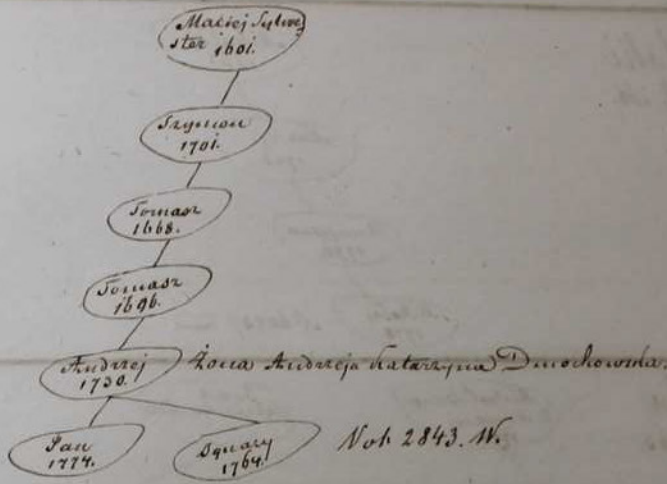 Maciej Sylwe
ster 1601.
Szymon
1701.
Tomasz
1668.
Tomasz
1696.
Andrzej
1730.
Żona Andrzeja Katarzyna Dmochowska.
Jan
1774.
Ignacy
1764.
2843. W.